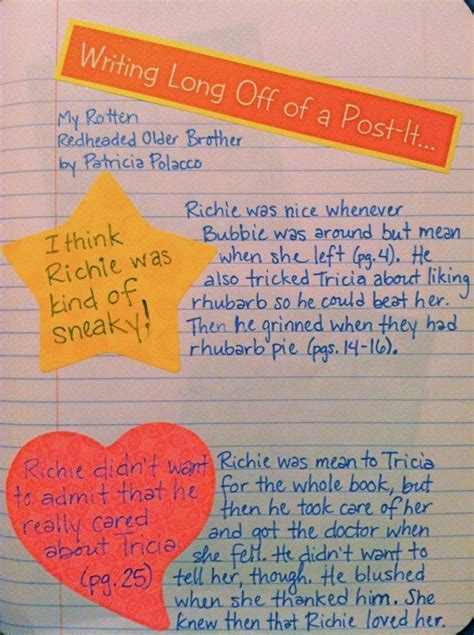 Writing Long Off of a Post-It...
My Rotten
Redheaded Older Brother
by Patricia Polacco
I think
Richie was
kind of
sneaky!
Richie was nice whenever
Bubbie was around but mean
when she left (pg. 4). He
also tricked Tricia about liking
rhubarb so he could beat her.
Then he grinned when they had
rhubarb pie (pgs. 14-16).
Richie didn't want
to admit that he
really cared
about Tricia.
(pg. 25)
Richie was mean to Tricia
for the whole book, but
then he took care of her
and got the doctor when
she fell. He didn't want to
tell her, though. He blushed
when she thanked him. She
knew then that Richie loved her.